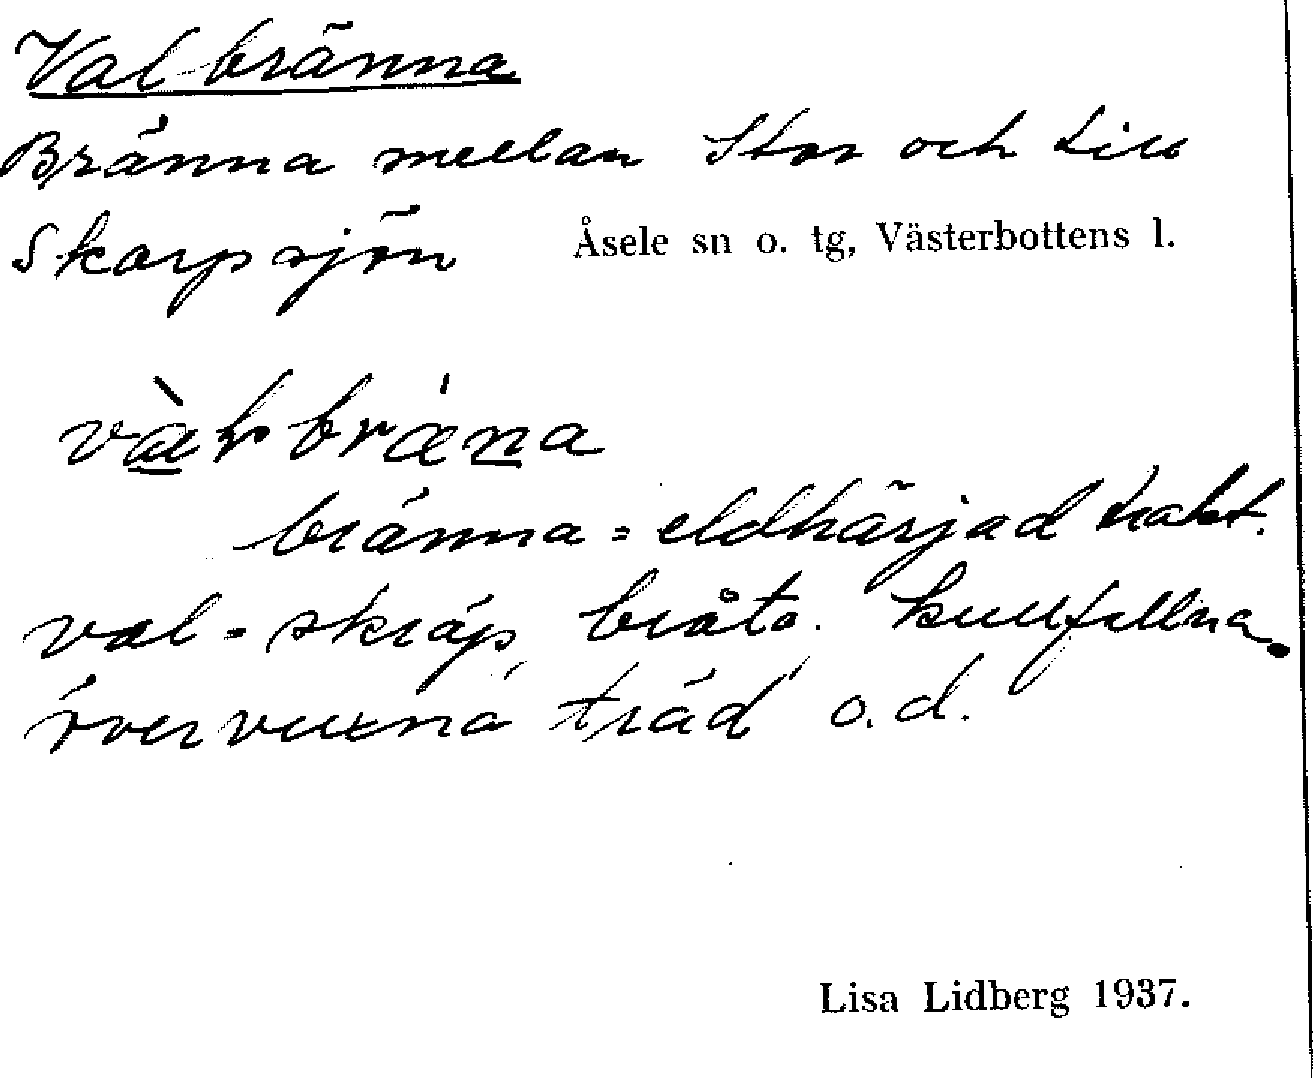 Valbränna
Bränna mellan Stor och Lill
Skarpsjön Åsele sn o. tg, Västerbottens l.
bränna = eldhärjad trakt.
val - skräp, bråte. kullfallna
övervuxna träd o.d.
Lisa Lidberg 1937.